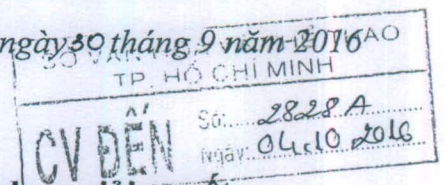 ngày 30 tháng 9 năm 2016
TP. HỒ CHÍ MINH
CV ĐẾN
Số:.....2828 A.....
Ngày: 04.10.2016